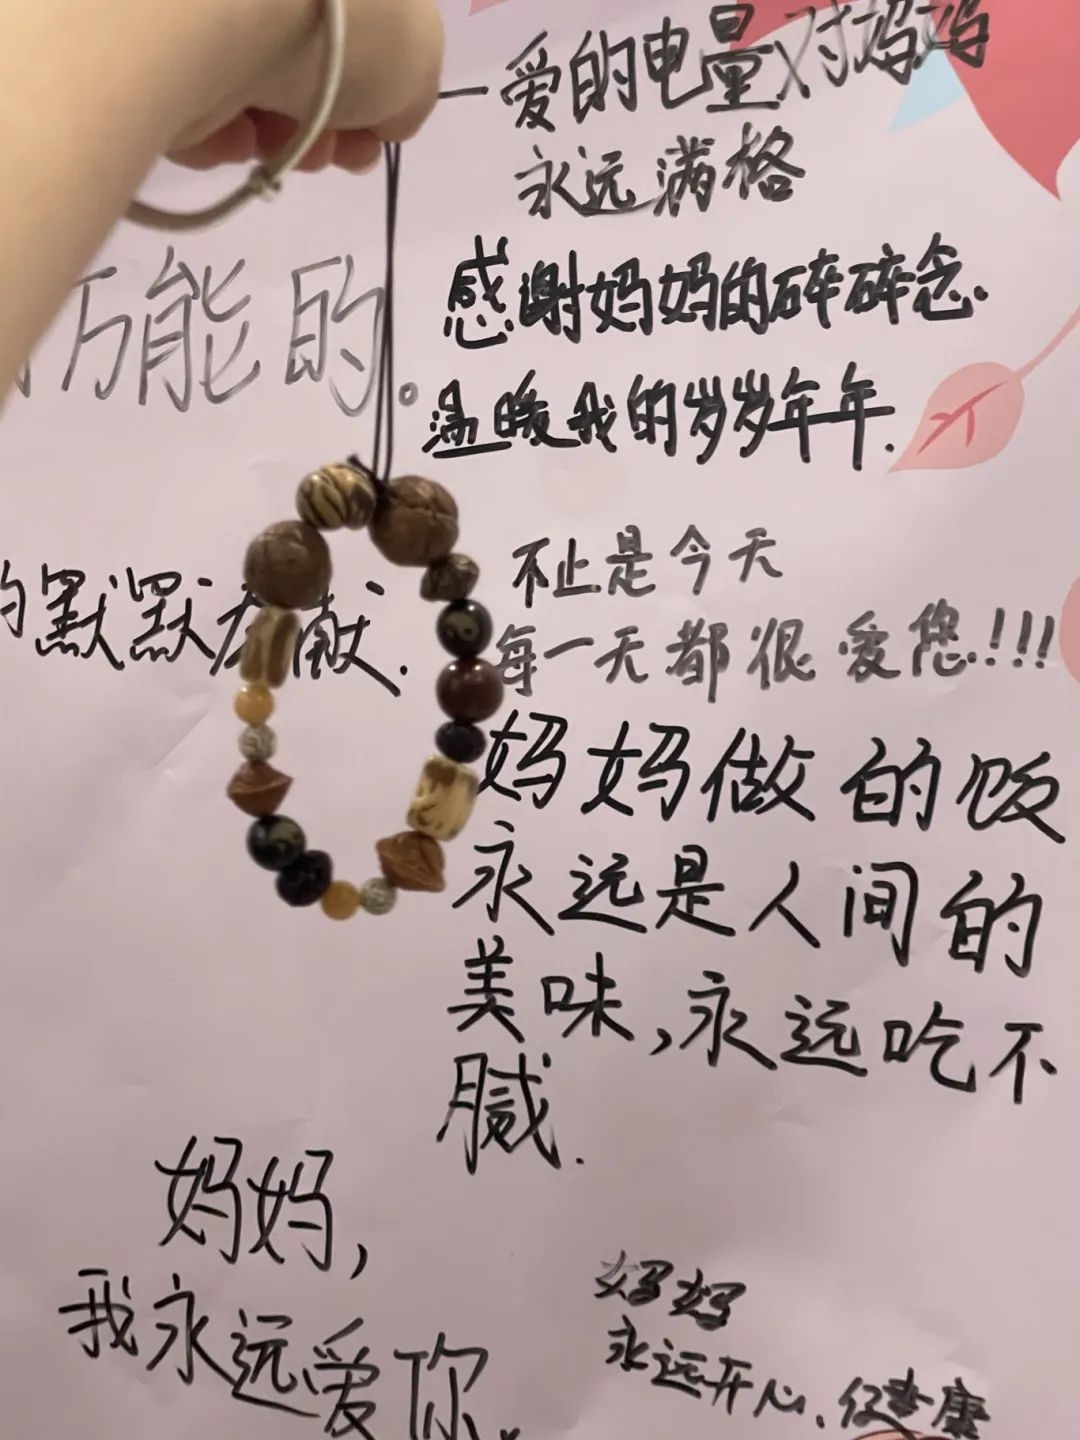 一爱的电量对妈妈
永远满格
万能的。
感谢妈妈的碎碎念.
温暖我的岁岁年年.
不止是今天
每一天都很爱您!!!
的默默奉献.
妈妈做的饭
永远是人间的
美味,永远吃不
腻.
妈妈,
我永远爱你.
妈妈
永远开心、健康